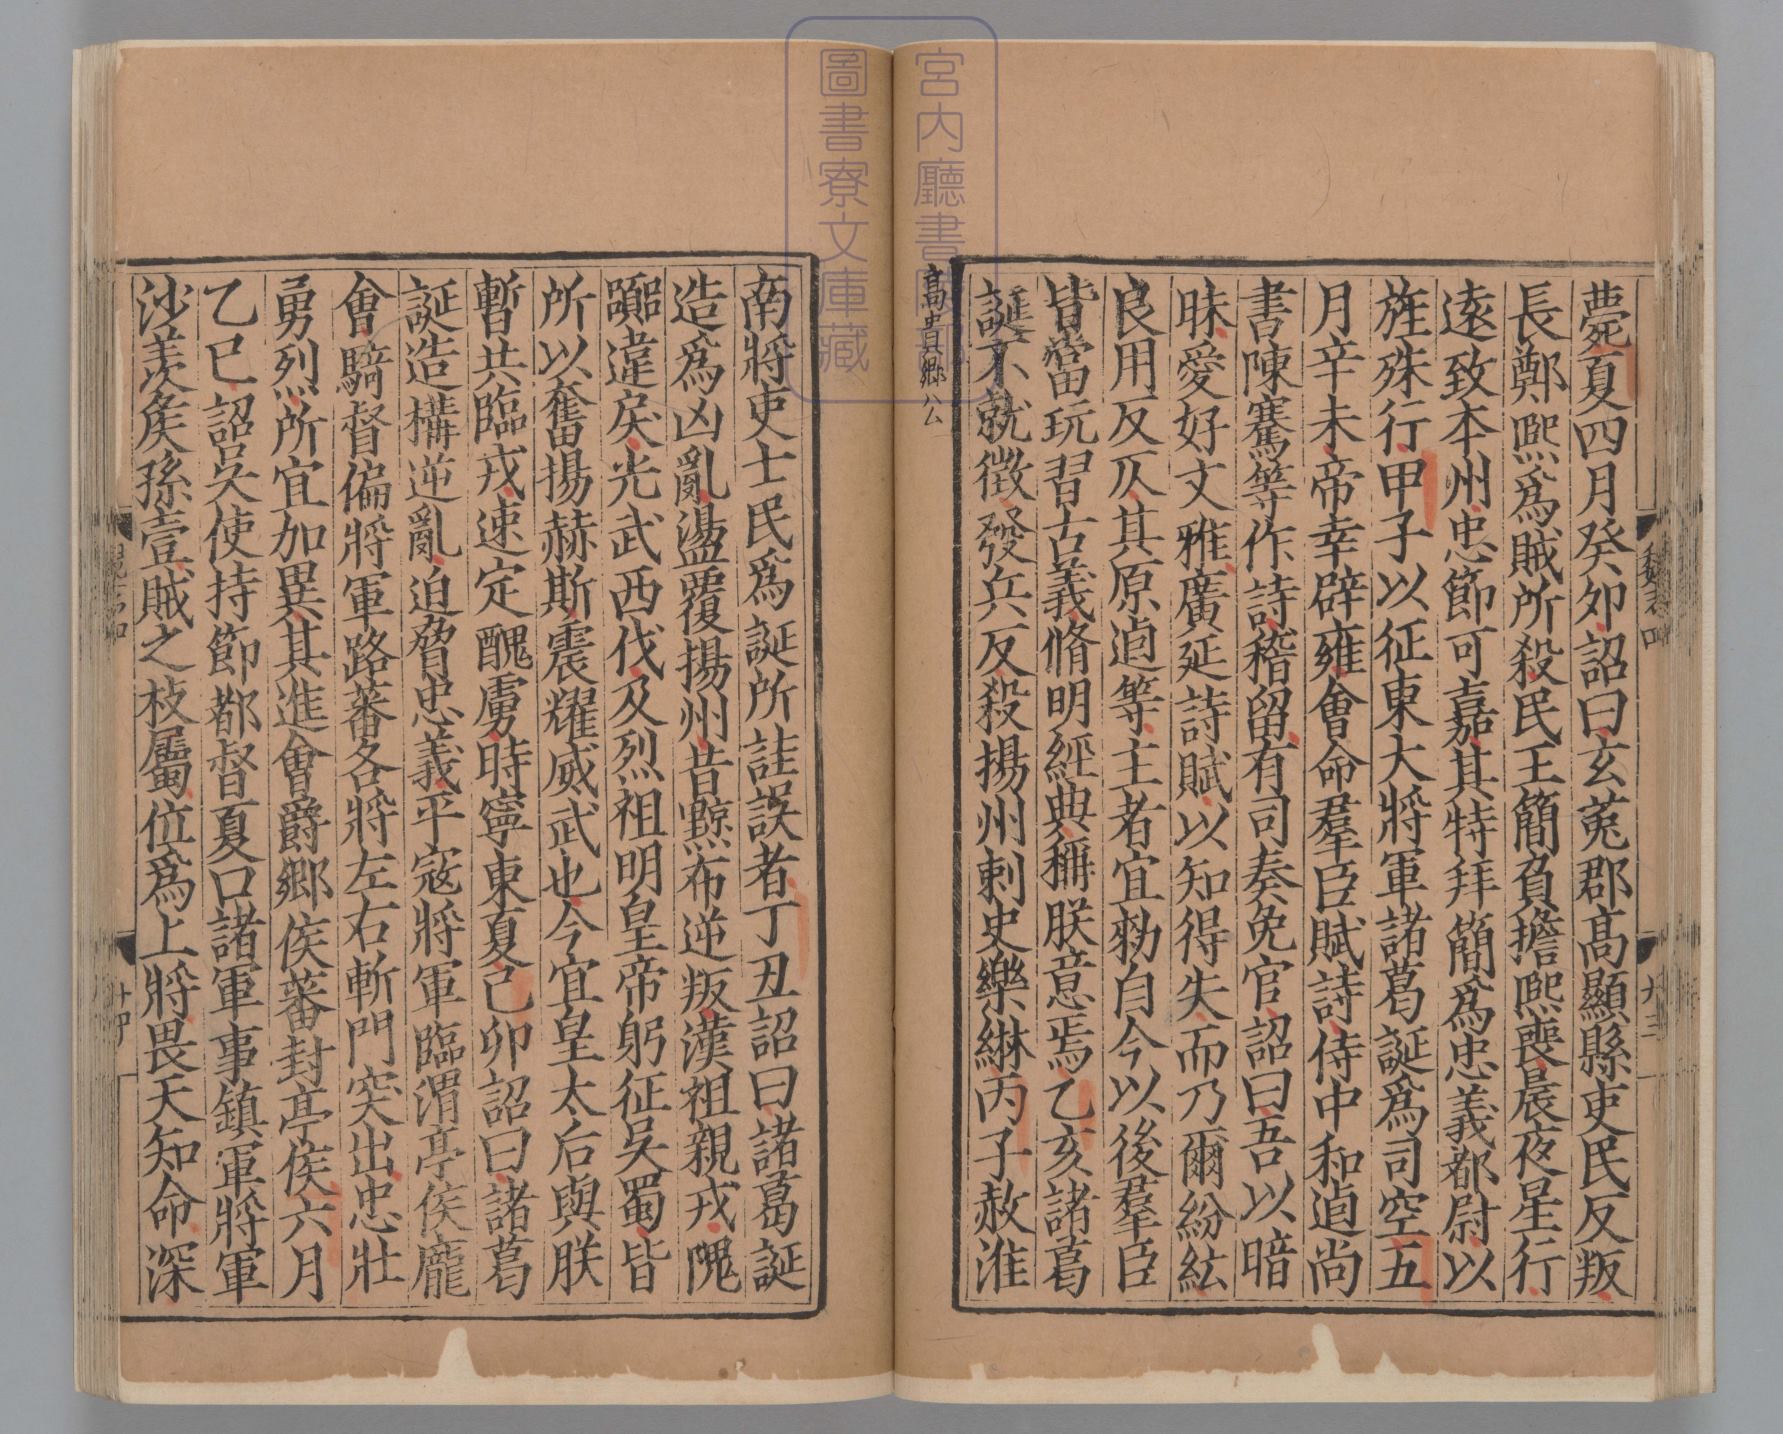 薨夏四月癸卯詔曰玄菟郡高顯縣吏民反叛
長鄭熙爲賊所殺民王簡負擔熙喪晨夜星行
遠致本州忠節可嘉其特拜簡爲忠義都尉以
旌殊行甲子以征東大將軍諸葛誕爲司空五
月辛未帝幸辟雍會命羣臣賦詩侍中和逌尚
書陳騫等作詩稽留有司奏免官詔曰吾以暗
昧愛好文雅廣延詩賦以知得失而乃爾紛紜
良用反仄其原逌等主者宜勑自今以後羣臣
皆當玩習古義脩明經典稱朕意焉乙亥諸葛
誕不就徵發兵反殺揚州刺史樂綝丙子赦淮
高貴鄉公
南將吏士民爲誕所詿誤者丁丑詔曰諸葛誕
造爲凶亂盪覆揚州昔黥布逆叛漢祖親戎隗
躧違戾光武西伐及烈祖明皇帝躬征吳蜀皆
所以奮揚赫斯震耀威武也今宜皇太后與朕
暫共臨戎速定醜虜時寧東夏己卯詔曰諸葛
誕造構逆亂迫脅忠義平寇將軍臨渭亭侯龐
會騎督偏將軍路蕃各將左右斬門突出忠壯
勇烈所宜加異其進會爵鄉侯蕃封亭侯六月
乙巳詔吳使持節都督夏口諸軍事鎮軍將軍
沙羨矦孫壹賊之枝屬位爲上將畏天知命深
魏志四
廿四
宮内廳書陵部
圖書寮文庫藏